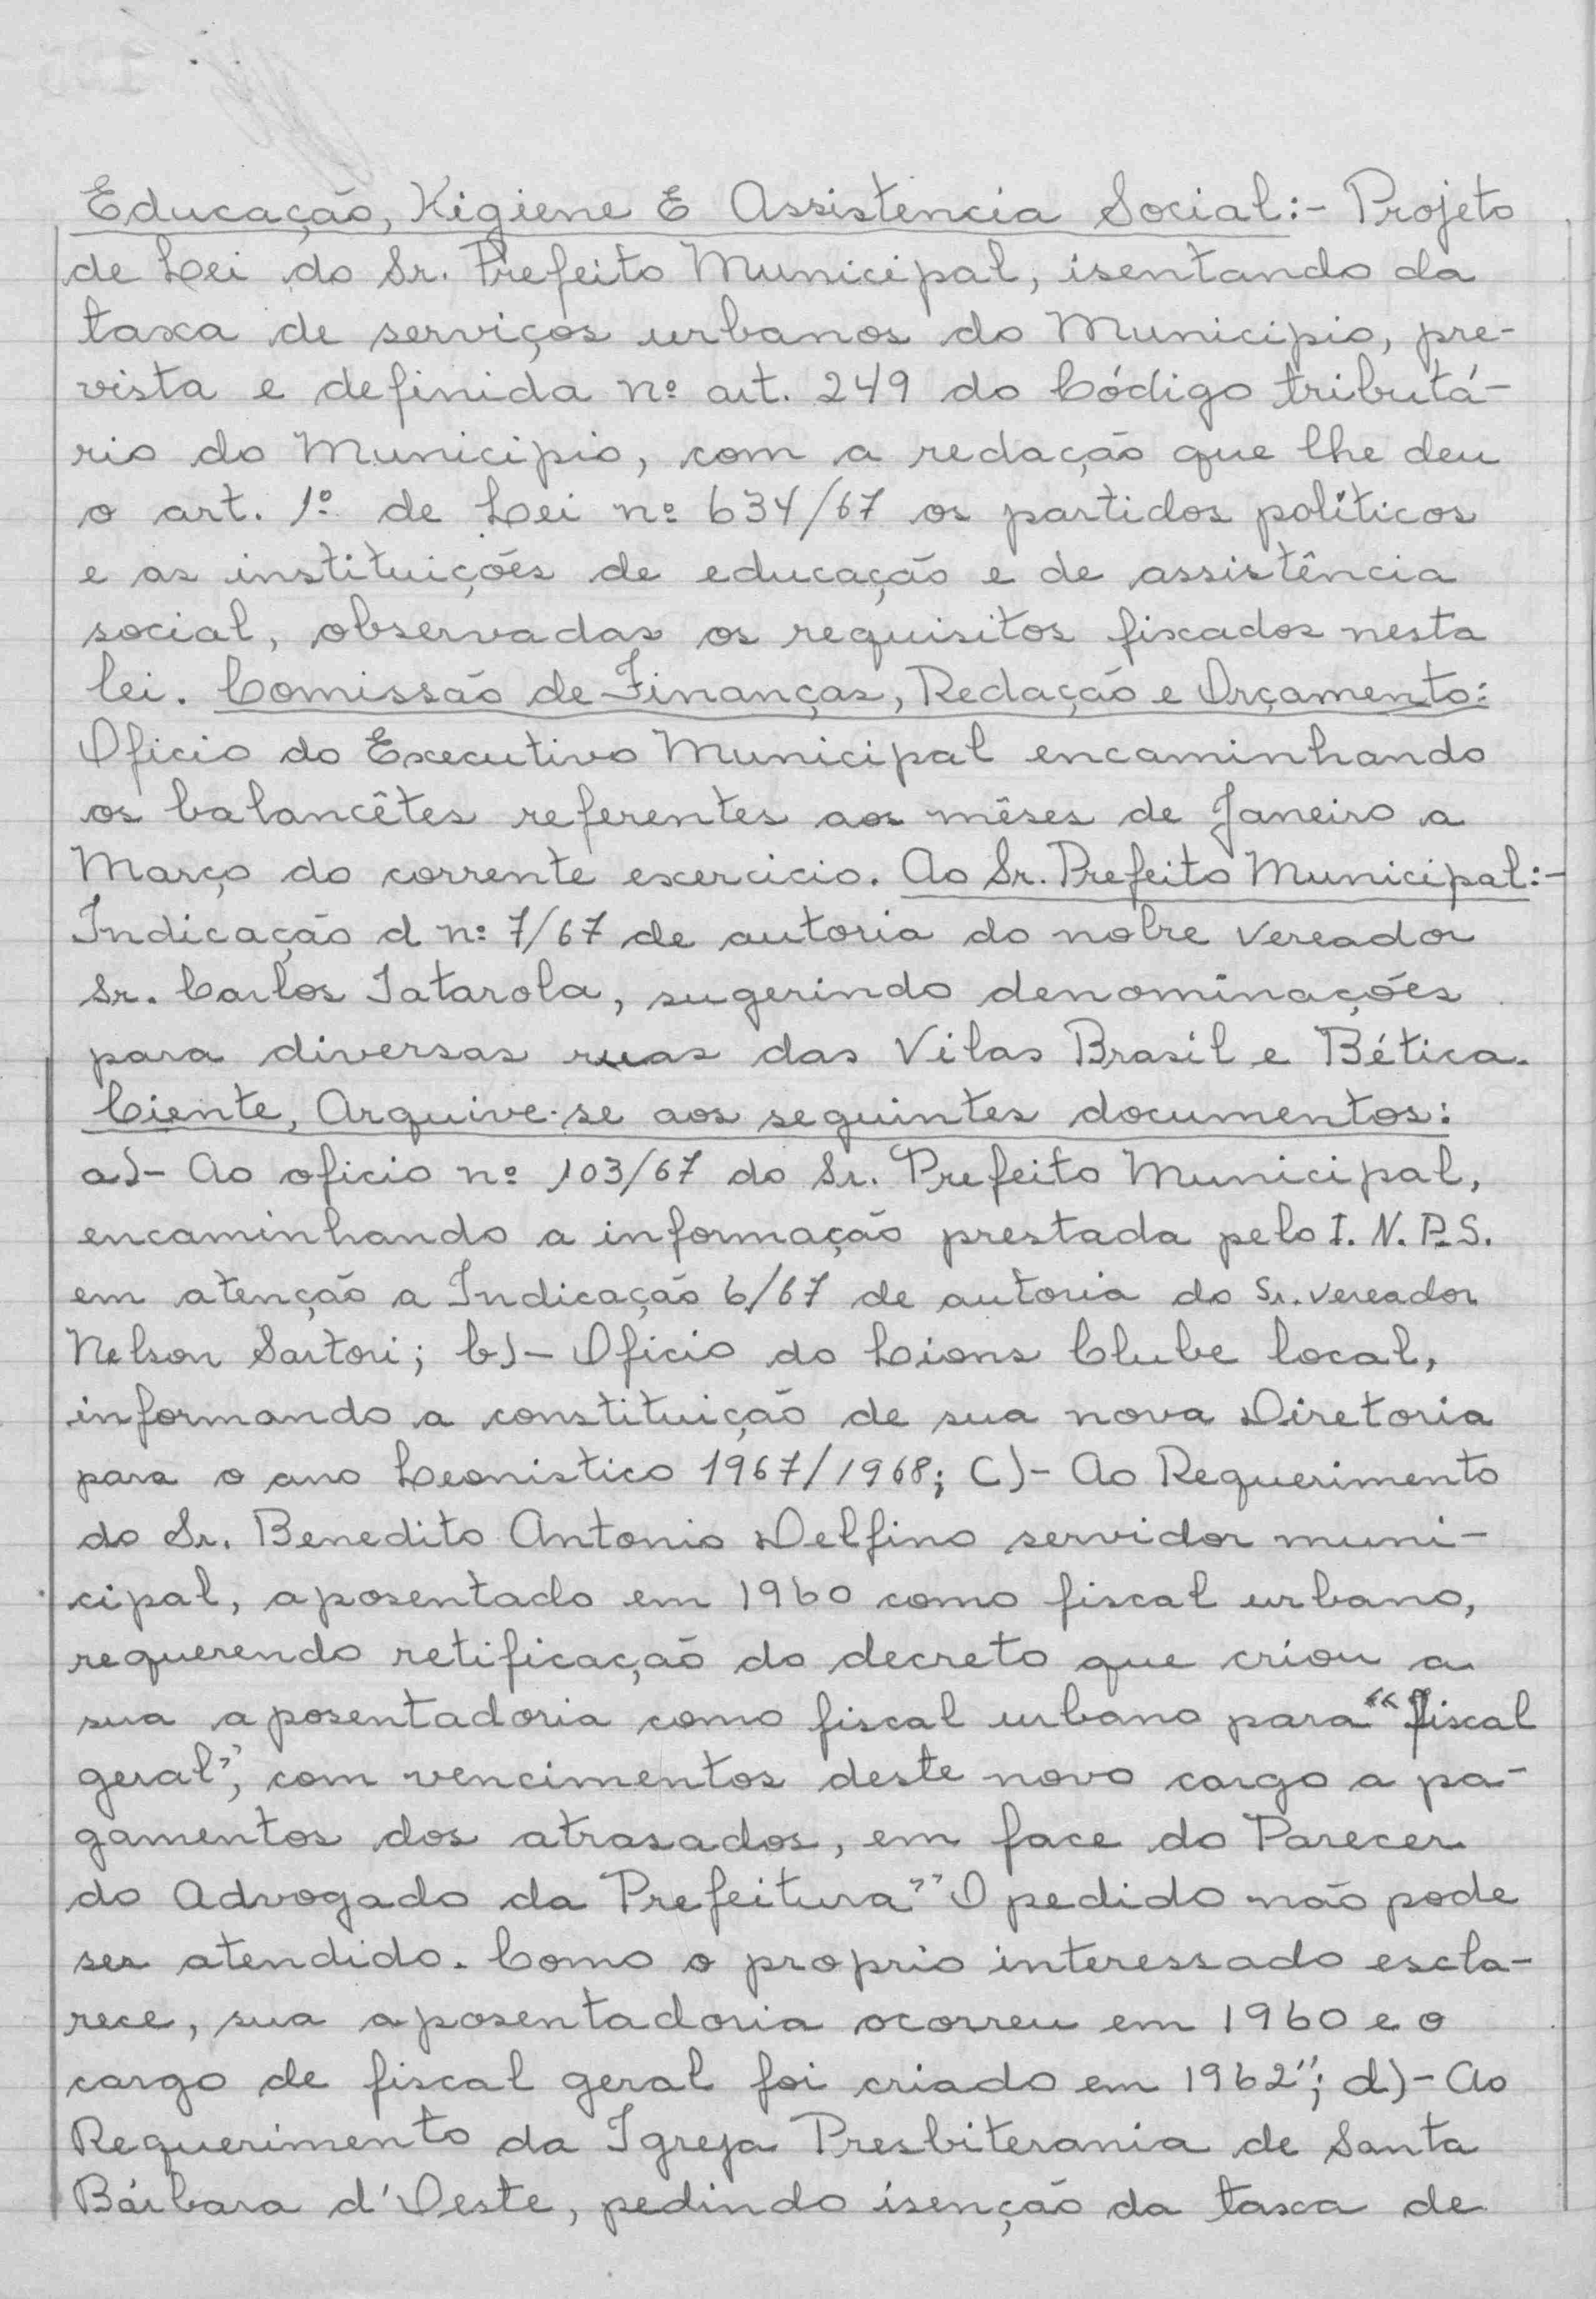 Educação, Higiene E Assistencia Social:- Projeto
de Lei do Sr. Prefeito Municipal, isentando da
taxa de serviços urbanos do Municipio, pre-
vista e definida nº art. 249 do Código tributá-
rio do Municipio, com a redação que lhe deu
o art. 1º de Lei nº 634/67 os partidos políticos
e as instituições de educação e de assistência
social, observadas os requisitos fixados nesta
lei. Comissão de Finanças, Redação e Orçamento:
Oficio do Executivo Municipal encaminhando
os balancêtes referentes aos mêses de Janeiro a
Março do corrente exercicio. Ao Sr. Prefeito Municipal:-
Indicação d nº 7/67 de autoria do nobre vereador
Sr. Carlos Tatarola, sugerindo denominações
para diversas ruas das Vilas Brasil e Bética.
Ciente, Arquive-se aos seguintes documentos:
a)- Ao oficio nº 103/67 do Sr. Prefeito Municipal,
encaminhando a informação prestada pelo I. N. P. S.
em atenção a Indicação 6/67 de autoria do Sr. vereador
Nelson Sartori; b)- Oficio do Lions Clube local,
informando a constituição de sua nova Diretoria
para o ano Leonistico 1967/1968; C)- Ao Requerimento
do Sr. Benedito Antonio Delfino servidor muni-
cipal, aposentado em 1960 como fiscal urbano,
requerendo retificação do decreto que criou a
sua aposentadoria como fiscal urbano para “fiscal
geral”, com vencimentos deste novo cargo a pa-
gamentos dos atrasados, em face do Parecer
do Advogado da Prefeitura” O pedido não pode
ser atendido. Como o proprio interessado escla-
rece, sua aposentadoria ocorreu em 1960 e o
cargo de fiscal geral foi criado em 1962”; d)- Ao
Requerimento da Igreja Presbiterania de Santa
Bárbara d'Oeste, pedindo isenção da taxa de